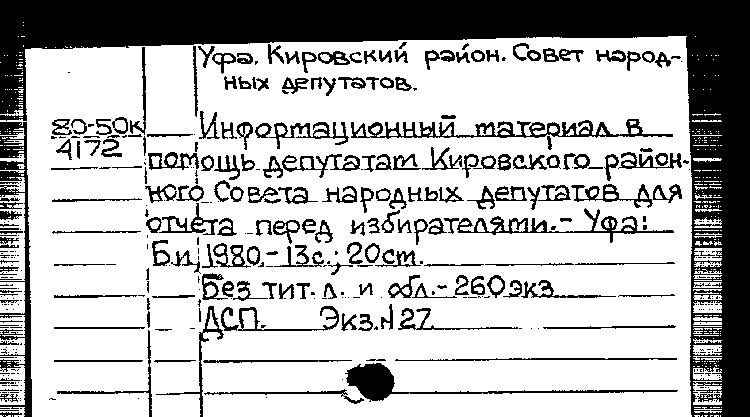 Уфа. Кировский район. Совет народ-
ных депутатов.
80-50к
4172
Информационный материал в
помощь депутатам Кировского район-
ного Совета народных депутатов для
отчёта перед избирателями.- Уфа:
Б.и., 1980.- 13с.; 20см.
Без тит. л. и обл.- 260экз
ДСП. Экз.№27